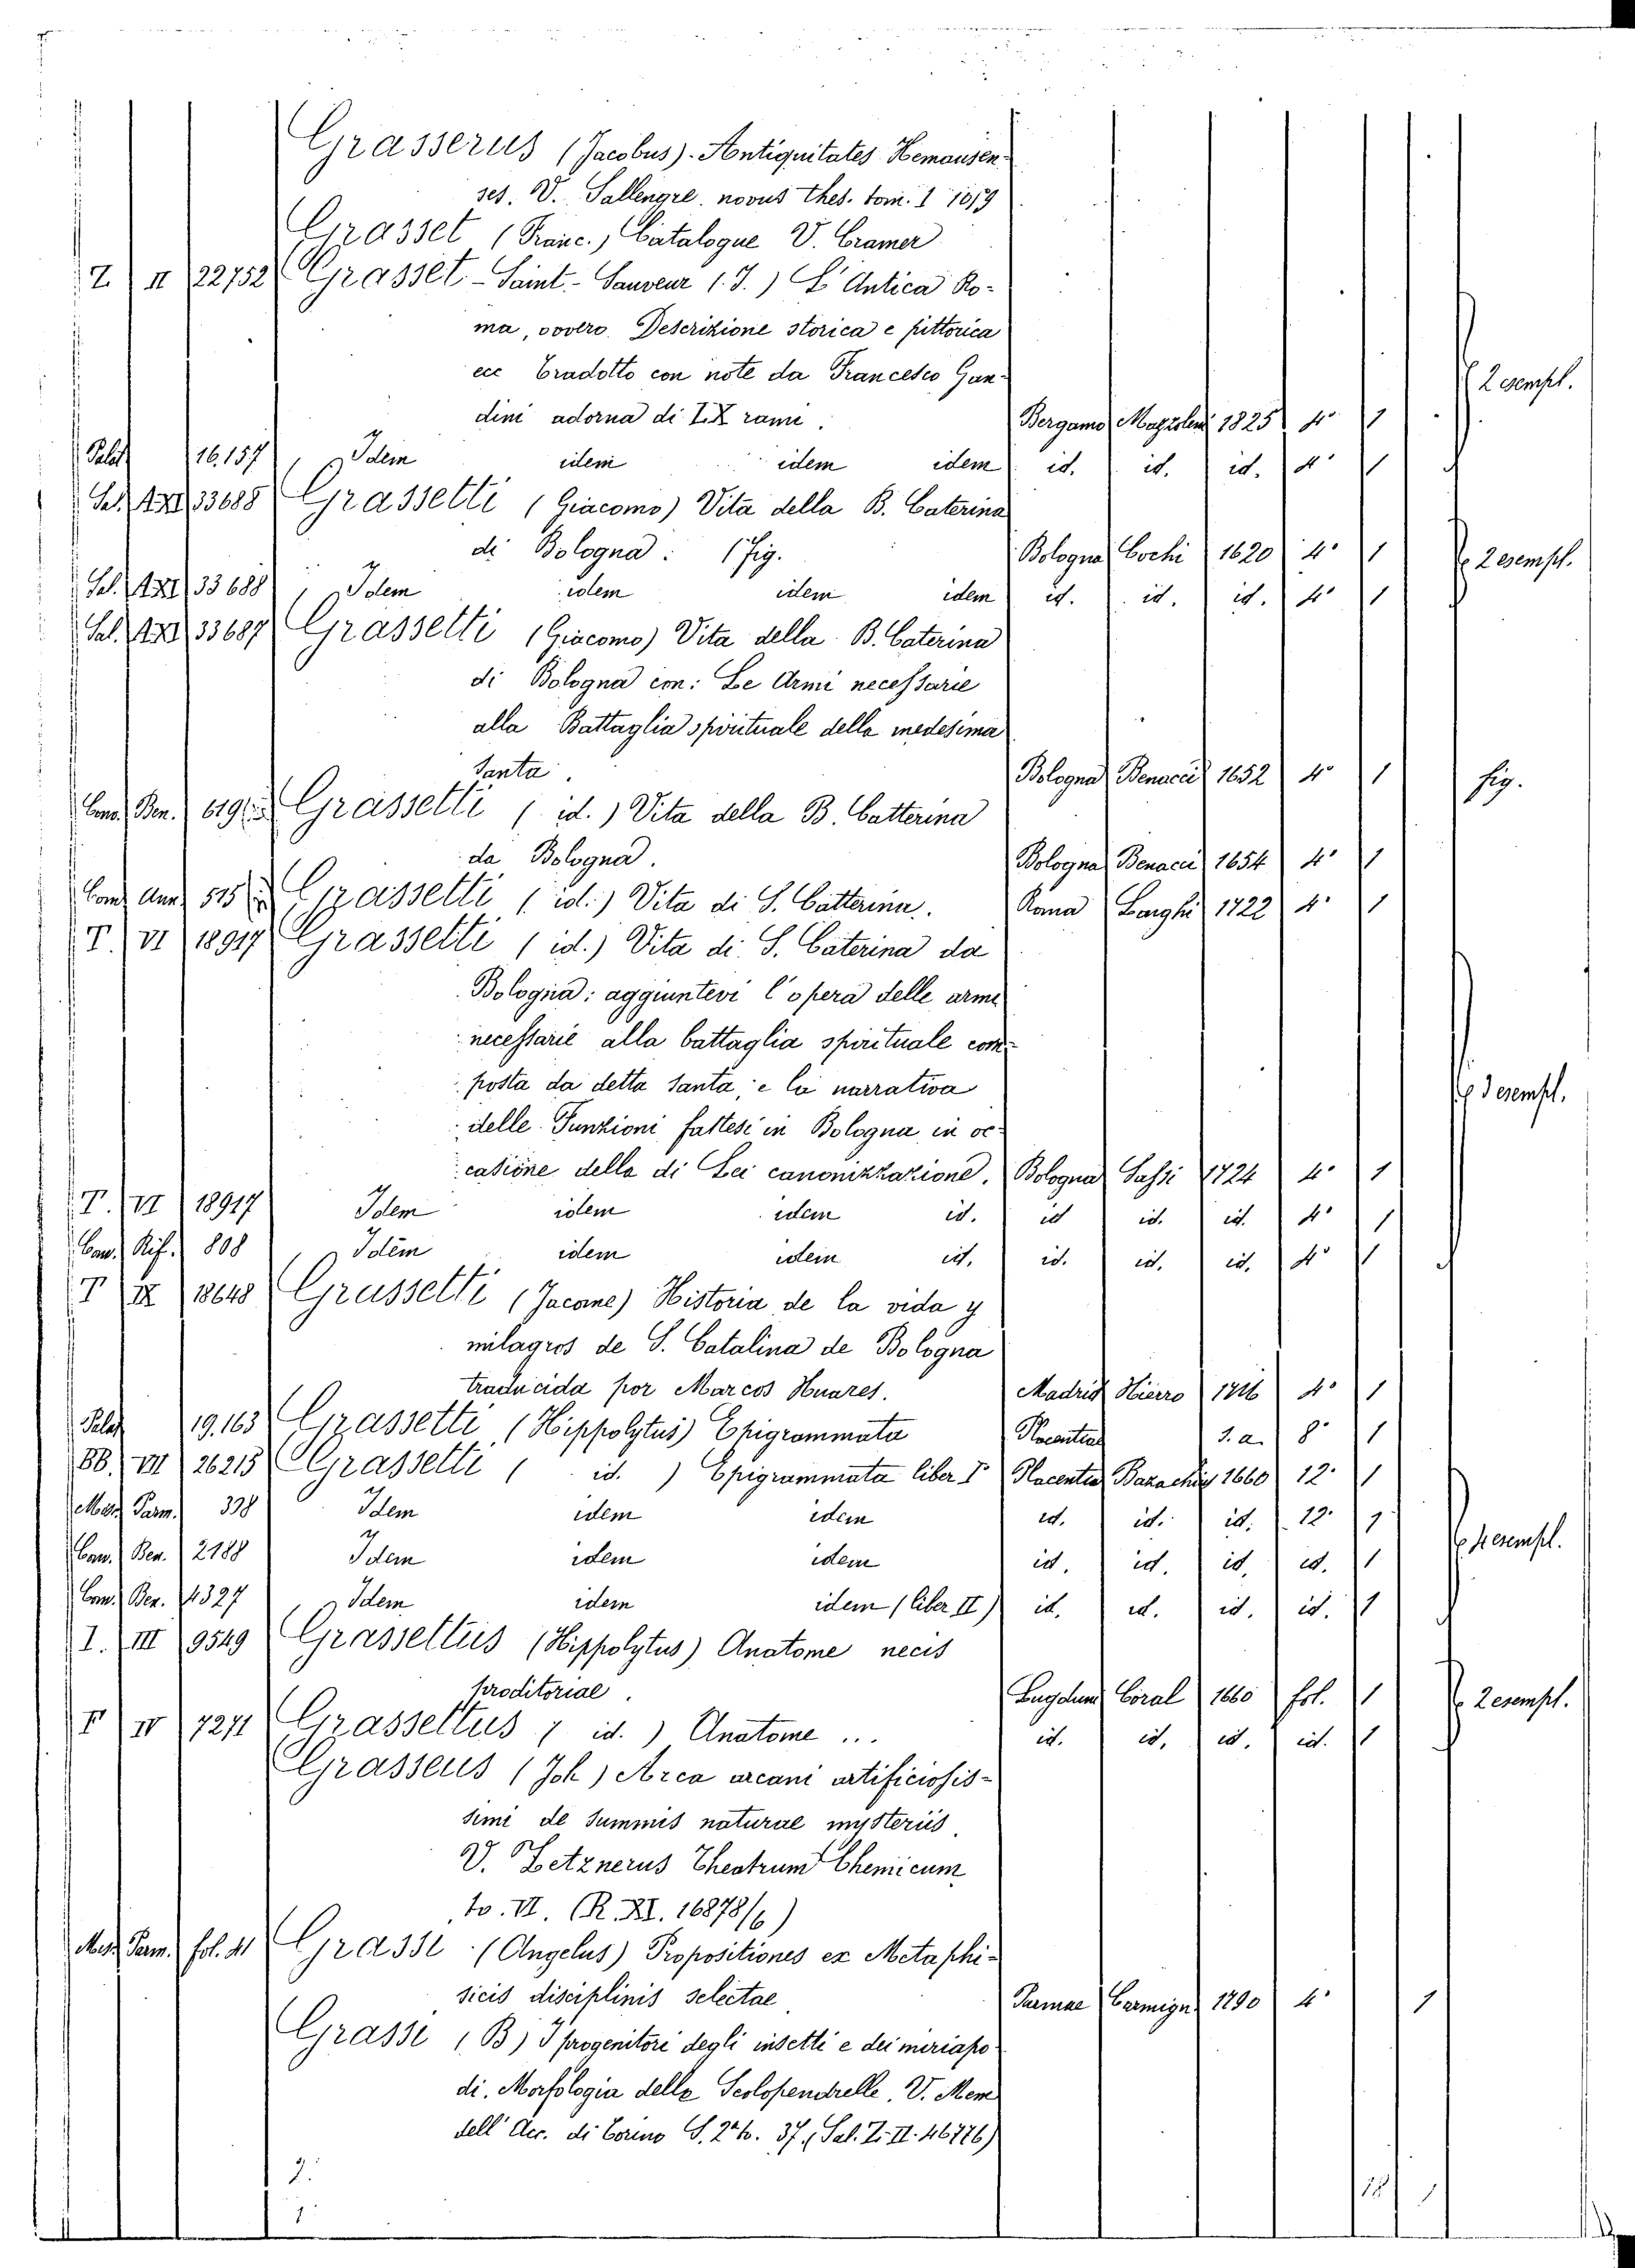 Grasserus (Jacobus). Antiquitates Nemausen-
ses. V. Sallengre. novus thes. tom. I 1059
Grasset (Franc.) Catalogue V. Cramer
Z. II 22752 Grasset-Saint-Sauveur (J.) L'Antica Ro-
ma, ovvero. Descrizione storica e pittorica
ecc Tradotto con note da Francesco Gan-
2 esempl.
dini adorna di LX rami. Bergamo 1825 4° 1
Palat 16.157 Idem idem idem idem id. id. id. 4° 1
Sal. XXI 33688 Grassetti (Giacomo) Vita della B. Caterina
di Bologna: (fig. Bologna Cochi 1620 4° 1 2 esempl.
Sal. XXI 33688 Idem idem idem idem id. id. id. 4° 1
Sal. XXI 33687 Grassetti (Giacomo) Vita della B. Caterina
di Bologna con: Le Armi necessarie
alla Battaglia spirituale della medesima
Santa. Bologna Benacci 1652 4° 1 fig.
Conv. Ben. 619 Grassetti (id.) Vita della B. Catterina
da Bologna. Bologna Benacci 1654 4° 1
Conv. Ann. 515 Grassetti (id.) Vita di S. Catterina. Roma Borghi 1722 4° 1
T. VI 18917 Grassetti (id.) Vita di S. Caterina da
Bologna: aggiuntevi l'opera delle arme
necessarie alla battaglia spirituale com-
posta da detta Santa, e la narrativa
3 esempl.
delle Funzioni fattesi in Bologna in oc-
casione della di Lei canonizzazione. Bologna Sassi 1724 4° 1
T. VI 18917 Idem idem idem id. id id. id. 4° 1
Conv. Rif. 808 Idem idem idem id. id. id. id. 4° 1
T IX 18648 Grassetti (Jacome) Historia de la vida y
milagros de S. Catalina de Bologna
traducida por Marcos Huares. Madrid Hierro 4° 1
Palat 19.163 Grassetti (Hippolytus) Epigrammata Placentiae s. a. 8° 1
BB. VIII 26215 Grassetti ( id. ) Epigrammata liber I° Placentiae 1660 12° 1
Mess. Parm. 398 Idem idem idem id. id. id. 12° 1
4 esempl.
Conv. Ben. 2188 Idem idem idem id. id. id. id. 1
Conv. Ben. 4327 Idem idem idem (liber II) id. id. id. id. 1
I. III 9549 Grassettus (Hippolytus) Anatome necis
proditoriae. Lugduni Coral 1660 fol. 1 2 esempl.
F IV 7271 Grassettus ( id. ) Anatome ... id. id. id. id. 1
Grasseus (Joh) Arca arcani artificiosis-
simi de summis naturae mysteriis.
V. Zetznerus Theatrum Chemicum
to. VI. (R. XI. 16878/6)
Mess. Parm. fol. 41 Grassi (Angelus) Propositiones ex Metaphi-
sicis disciplinis selectae Parmae Carmign. 1790 4° 1
Grassi (B) I progenitori degli insetti e dei miriapo-
di. Morfologia delle Scolopendrelle. V. Mem
dell' Acc. di Torino S. 2ª to. 37. (Sal. Z. II. 46776)
2.
1.
18 1